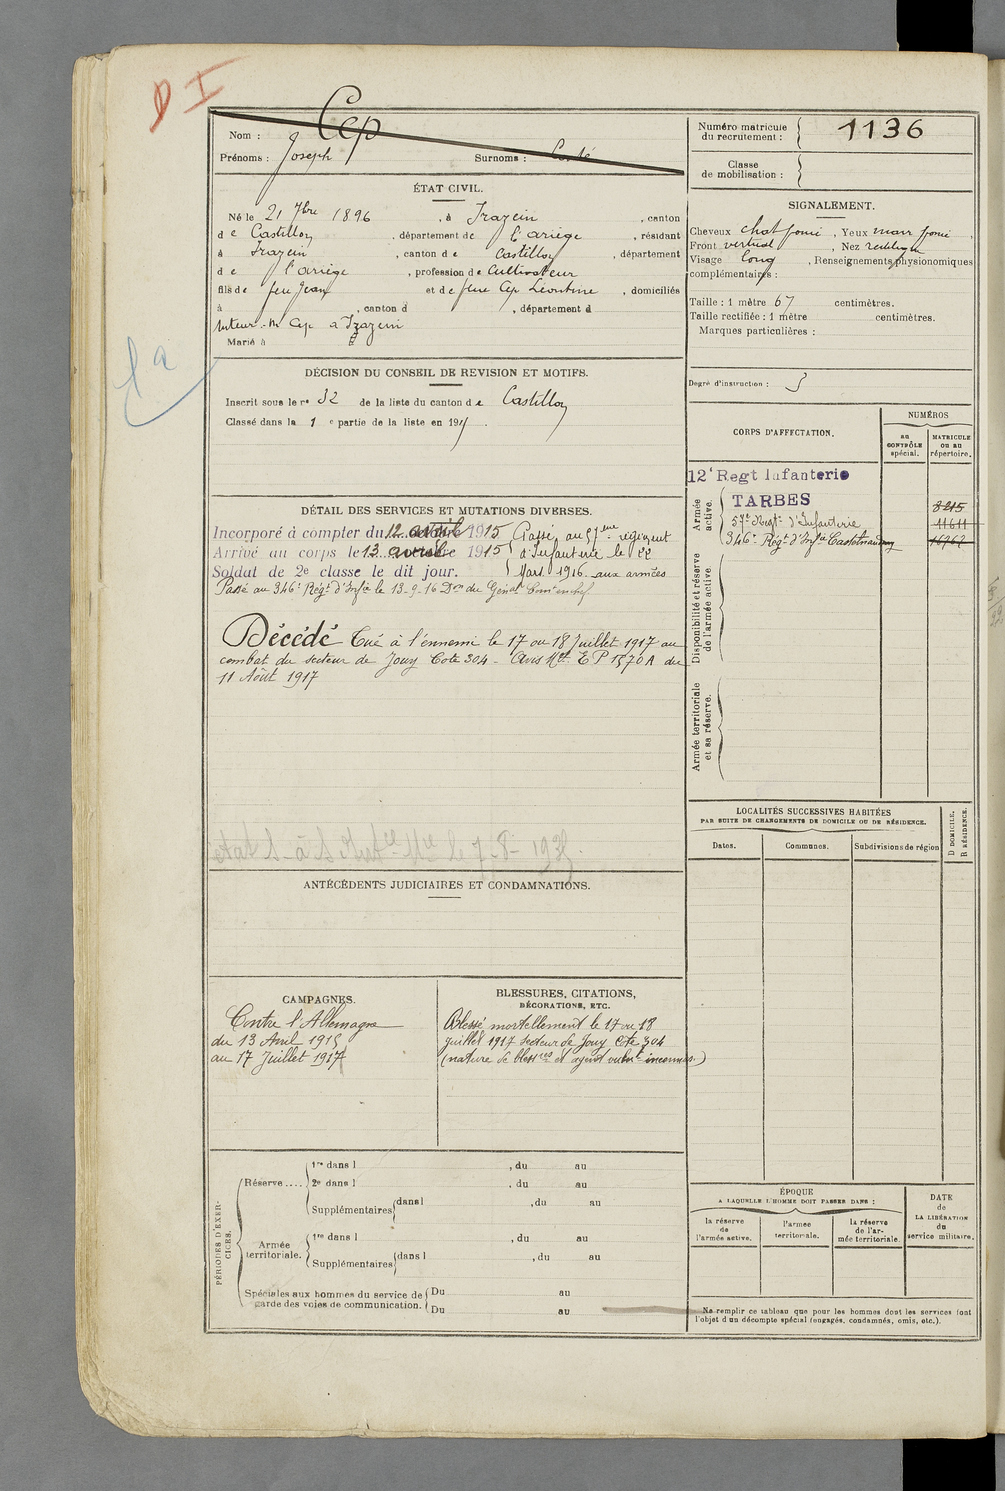 D I
Nom : Cep
Prénoms : Joseph Surnoms :
Numéro matricule du recrutement : 1136
Classe de mobilisation :
ÉTAT CIVIL.
Né le 21 7bre 1896, à Irazein, canton
de Castillon, département de l'Ariège, résidant
à Irazein, canton de Castillon, département
de l'Ariège, profession de Cultivateur
fils de feu Jean et de feue Cep Léontine, domiciliés
à , canton d , département d
tuteur : M. Cep à Irazein
Marié à
SIGNALEMENT.
Cheveux chat foncé, Yeux marr foncé,
Front vertical, Nez rectiligne
Visage long, Renseignements physionomiques
complémentaires :
Taille : 1 mètre 67 centimètres.
Taille rectifiée : 1 mètre centimètres.
Marques particulières :
Degré d'instruction : 3
DÉCISION DU CONSEIL DE REVISION ET MOTIFS.
Inscrit sous le n° 32 de la liste du canton de Castillon
Classé dans la 1 e partie de la liste en 191
DÉTAIL DES SERVICES ET MUTATIONS DIVERSES.
Incorporé à compter du 12 avril 1915
Arrivé au corps le 13 avril 1915
Soldat de 2e classe le dit jour.
Passé au 57ème régiment
d'Infanterie le 22
Mars 1916 aux armées
Passé au 346e Régt d'Infie le 13-9-16 Don du Génal Comt en chef
Décédé Tué à l'ennemi le 17 ou 18 Juillet 1917 au
combat du secteur de Jouy Cote 304 - Avis Mel E P 1570 A du
11 Août 1917
CORPS D'AFFECTATION.
NUMÉROS
au CONTRÔLE spécial.
MATRICULE ou au répertoire.
Armée active.
12e Regt Infanterie
TARBES 8215
57e Regt d'Infanterie 11611
346e Régt d'Infie Castelnaudary
Disponibilité et réserve de l'armée active.
Armée territoriale et sa réserve.
le 7-8-
ANTÉCÉDENTS JUDICIAIRES ET CONDAMNATIONS.
LOCALITÉS SUCCESSIVES HABITÉES
PAR SUITE DE CHANGEMENTS DE DOMICILE OU DE RÉSIDENCE.
D DOMICILE.
R RÉSIDENCE.
Dates. Communes. Subdivisions de région
CAMPAGNES.
Contre l'Allemagne
du 13 Avril 1915
au 17 Juillet 1917
BLESSURES, CITATIONS,
DÉCORATIONS, ETC.
Blessé mortellement le 17 ou 18
juillet 1917 secteur de Jouy Cote 304
(nature de blessres et agent vulnt inconnus.)
PÉRIODES D'EXERCICES.
Réserve .... 1re dans l , du au
2e dans l , du au
Supplémentaires dans l , du au
Armée territoriale. 1re dans l , du au
Supplémentaires dans l , du au
Spéciales aux hommes du service de garde des voies de communication. Du au
Du au
ÉPOQUE
A LAQUELLE L'HOMME DOIT PASSER DANS :
la réserve de l'armée active.
l'armée territoriale.
la réserve de l'armée territoriale.
DATE de LA LIBÉRATION du service militaire.
Ne remplir ce tableau que pour les hommes dont les services font
l'objet d'un décompte spécial (engagés, condamnés, omis, etc.).